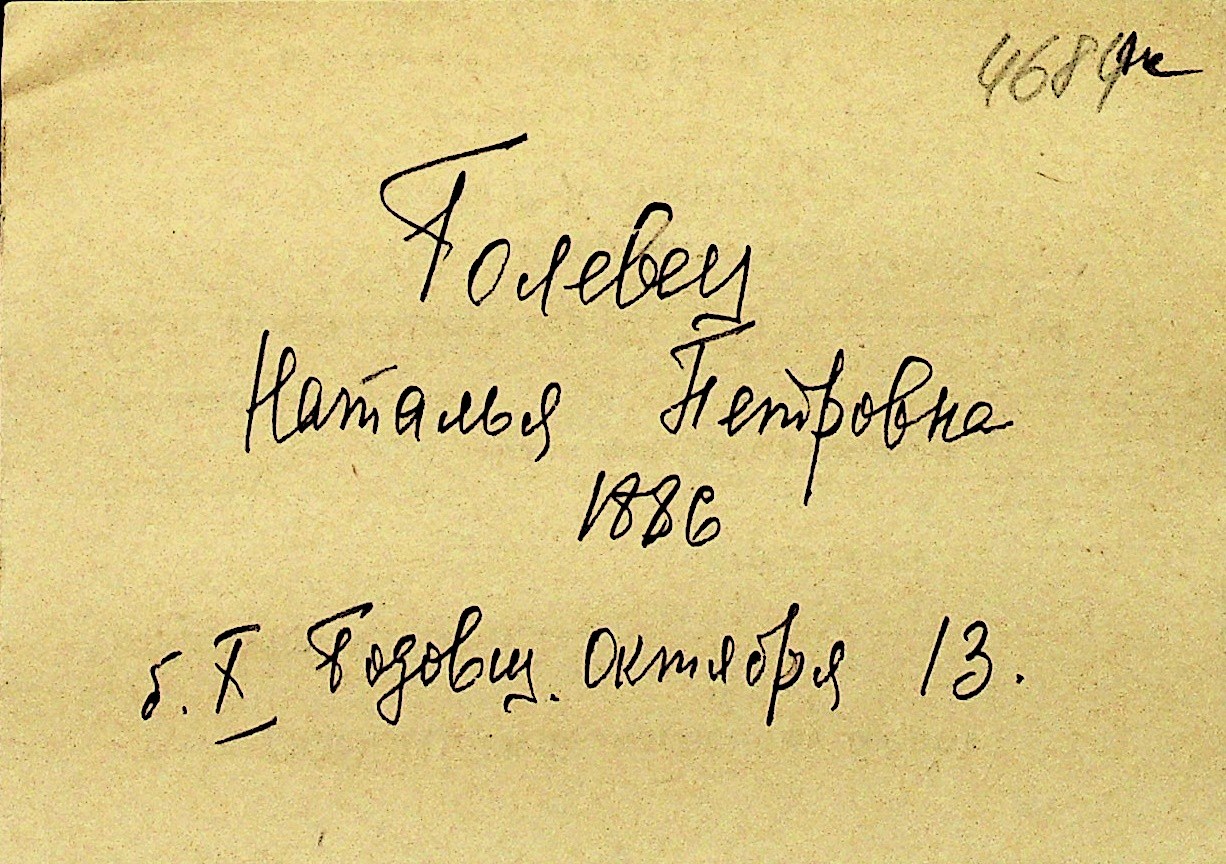 4684
Голевец
Наталья Петровна
1886
б. X Годовщ. Октября 13.